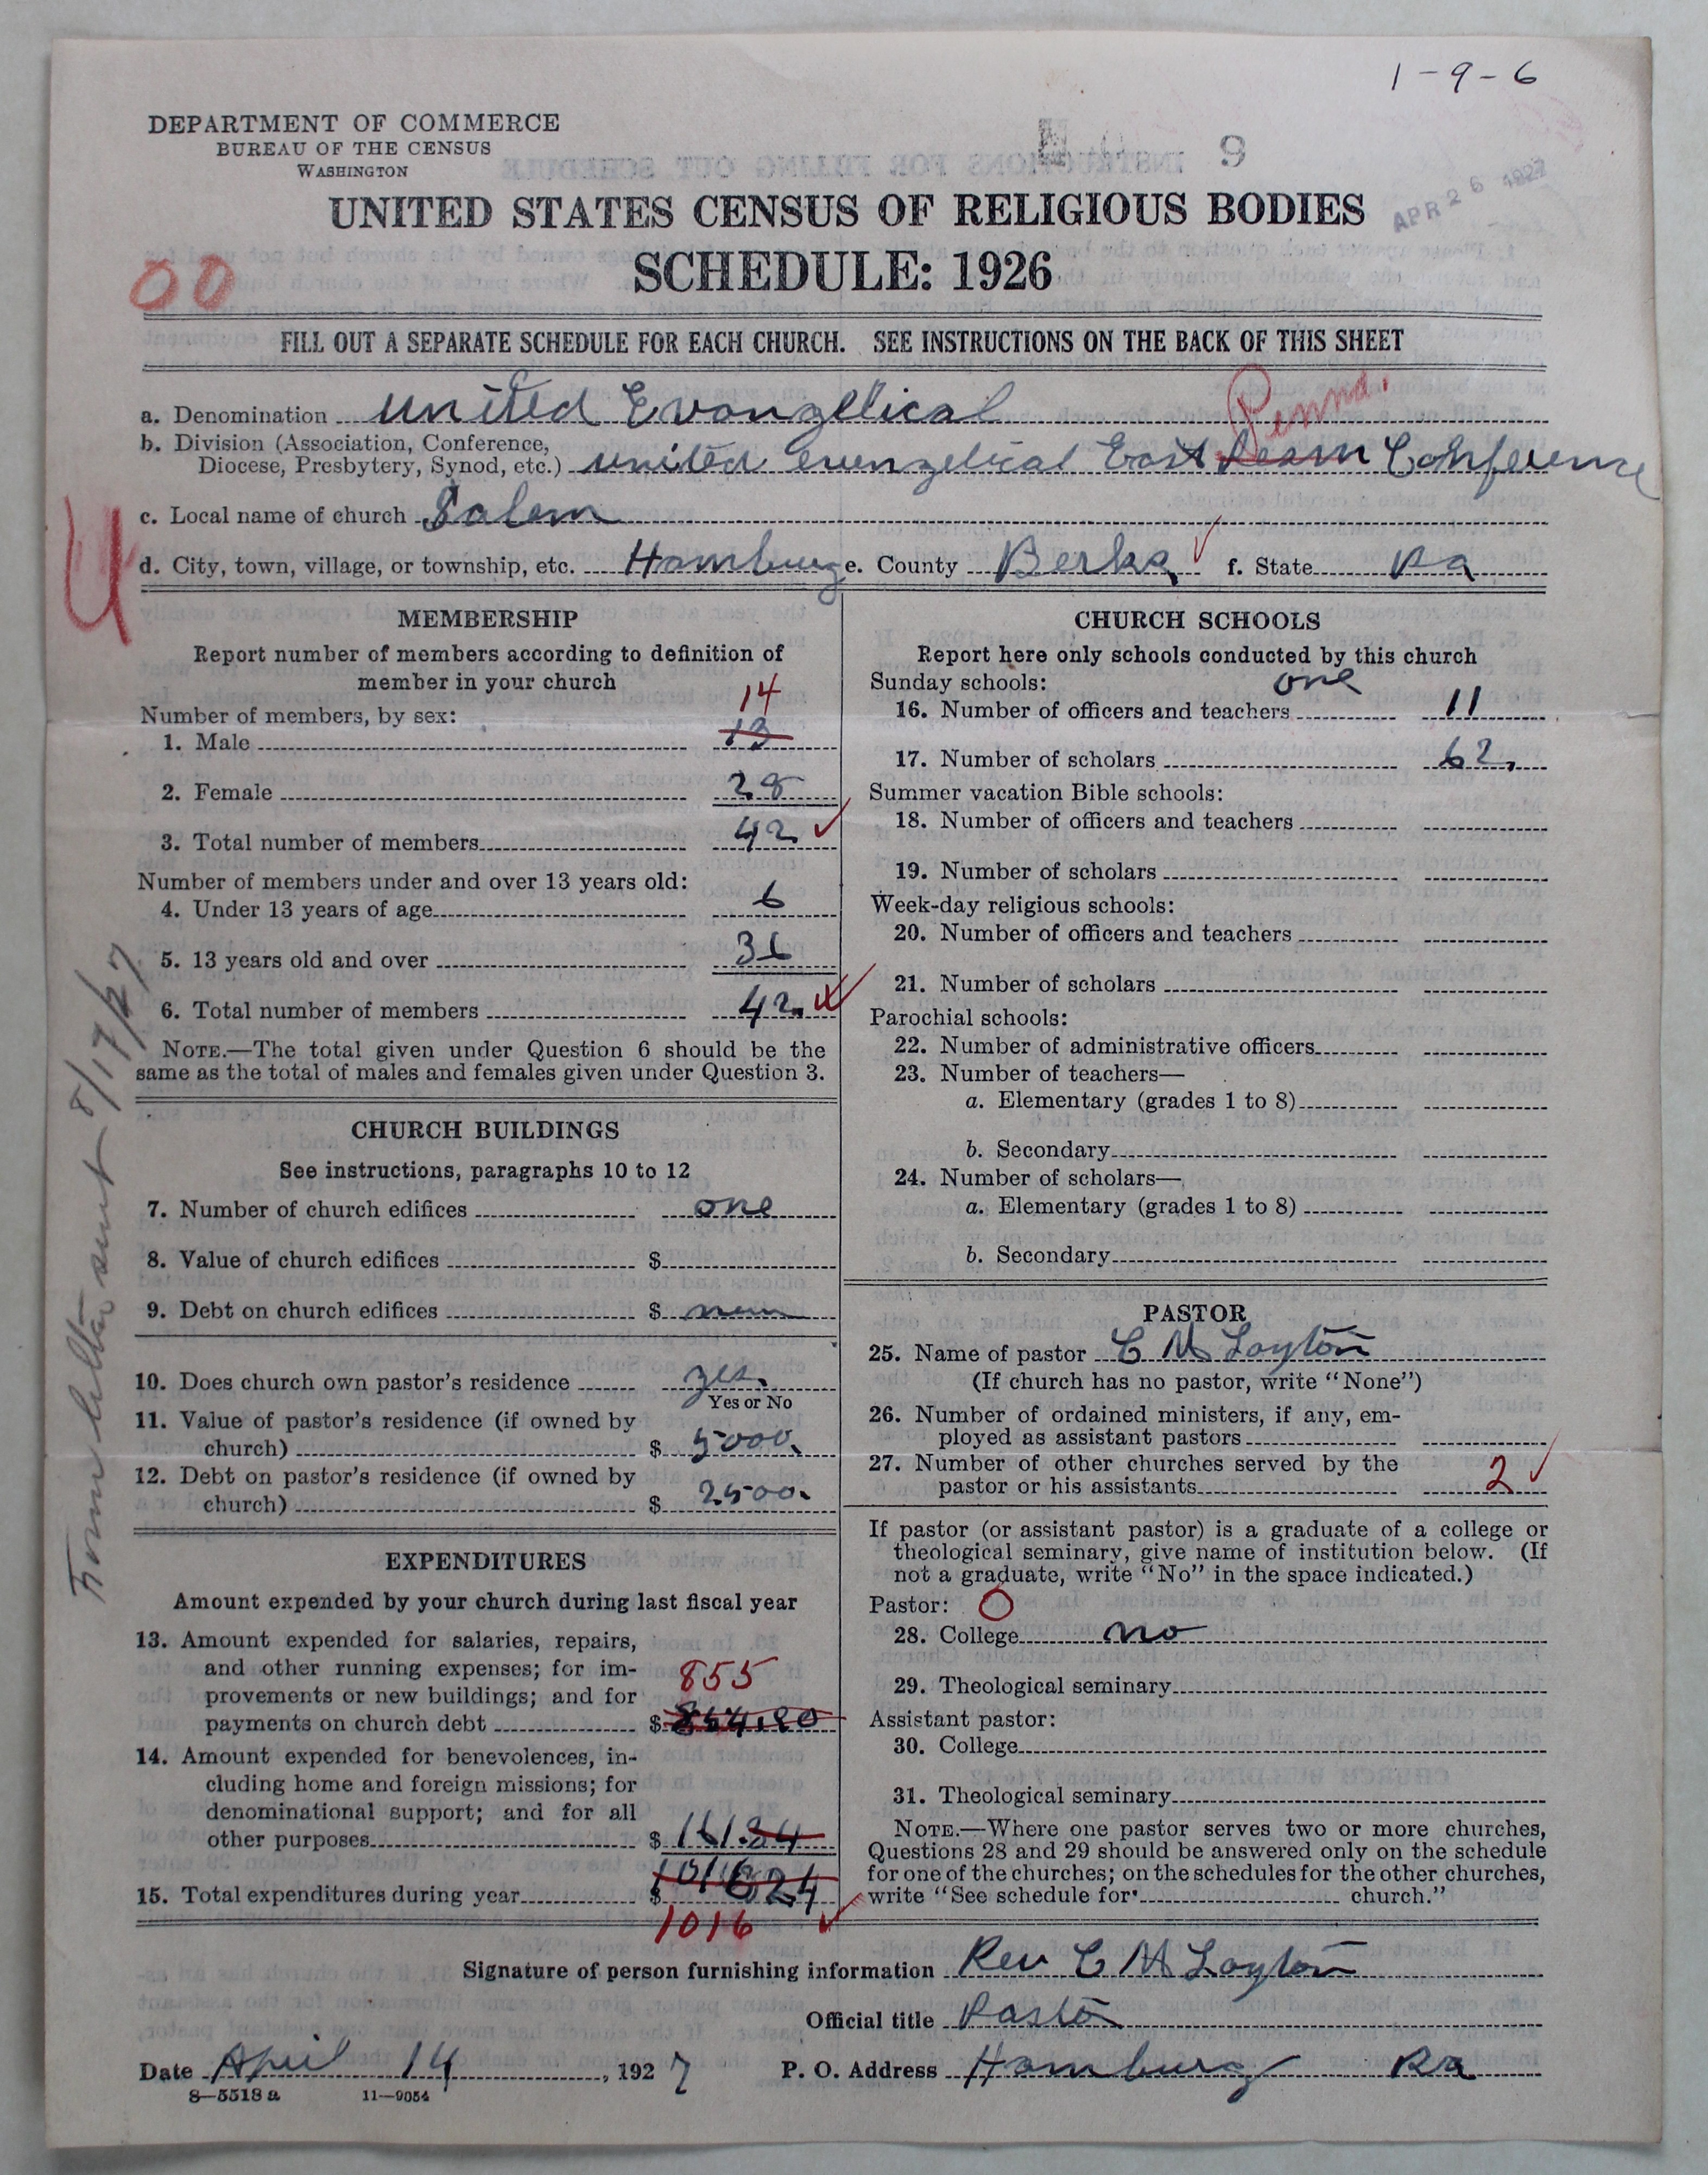 1-9-6
DEPARTMENT OF COMMERCE
BUREAU OF THE CENSUS
WASHINGTON
9
APR 26 1927
UNITED STATES CENSUS OF RELIGIOUS BODIES
SCHEDULE: 1926
00
FILL OUT A SEPARATE SCHEDULE FOR EACH CHURCH. SEE INSTRUCTIONS ON THE BACK OF THIS SHEET
a. Denomination United Evangelical
Penna.
b. Division (Association, Conference,
Diocese, Presbytery, Synod, etc.) united evengelical East Conference
c. Local name of church Salem
d. City, town, village, or township, etc. Hamburg e. County Berks f. State Pa
U
MEMBERSHIP
Report number of members according to definition of
member in your church
14
Number of members, by sex:
1. Male 13
2. Female 28
3. Total number of members 42
Number of members under and over 13 years old:
4. Under 13 years of age 6
5. 13 years old and over 36
6. Total number of members 42
NOTE.—The total given under Question 6 should be the
same as the total of males and females given under Question 3.
CHURCH BUILDINGS
See instructions, paragraphs 10 to 12
7. Number of church edifices one
8. Value of church edifices $
9. Debt on church edifices $
10. Does church own pastor's residence yes.
Yes or No
11. Value of pastor's residence (if owned by
church) $ 5000.
12. Debt on pastor's residence (if owned by
church) $ 2500.
EXPENDITURES
Amount expended by your church during last fiscal year
13. Amount expended for salaries, repairs,
and other running expenses; for im-
provements or new buildings; and for
855
payments on church debt $ 854.90
14. Amount expended for benevolences, in-
cluding home and foreign missions; for
denominational support; and for all
other purposes $ 161.34
15. Total expenditures during year $ 1016 24
1016
CHURCH SCHOOLS
Report here only schools conducted by this church
Sunday schools: one
16. Number of officers and teachers 11
17. Number of scholars 62.
Summer vacation Bible schools:
18. Number of officers and teachers
19. Number of scholars
Week-day religious schools:
20. Number of officers and teachers
21. Number of scholars
Parochial schools:
22. Number of administrative officers
23. Number of teachers—
a. Elementary (grades 1 to 8)
b. Secondary
24. Number of scholars—
a. Elementary (grades 1 to 8)
b. Secondary
PASTOR
25. Name of pastor C M Layton
(If church has no pastor, write "None")
26. Number of ordained ministers, if any, em-
ployed as assistant pastors
27. Number of other churches served by the
pastor or his assistants 2
If pastor (or assistant pastor) is a graduate of a college or
theological seminary, give name of institution below. (If
not a graduate, write "No" in the space indicated.)
Pastor: O
28. College no
29. Theological seminary
Assistant pastor:
30. College
31. Theological seminary
NOTE.—Where one pastor serves two or more churches,
Questions 28 and 29 should be answered only on the schedule
for one of the churches; on the schedules for the other churches,
write "See schedule for church."
Signature of person furnishing information Rev C M Layton
Official title Pastor
Date April 14, 1927 P. O. Address Hamburg Pa
8—5518 a 11—9054
Form letter sent 8/17/27